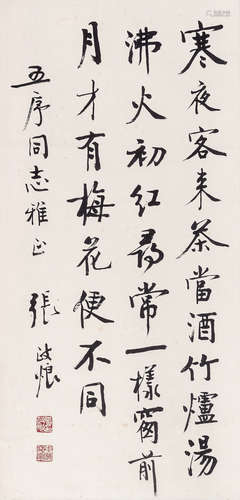 寒夜客来茶當酒竹爐湯
沸火初红尋常一樣窗前
月才有梅花便不同
五序同志雅正
張政烺